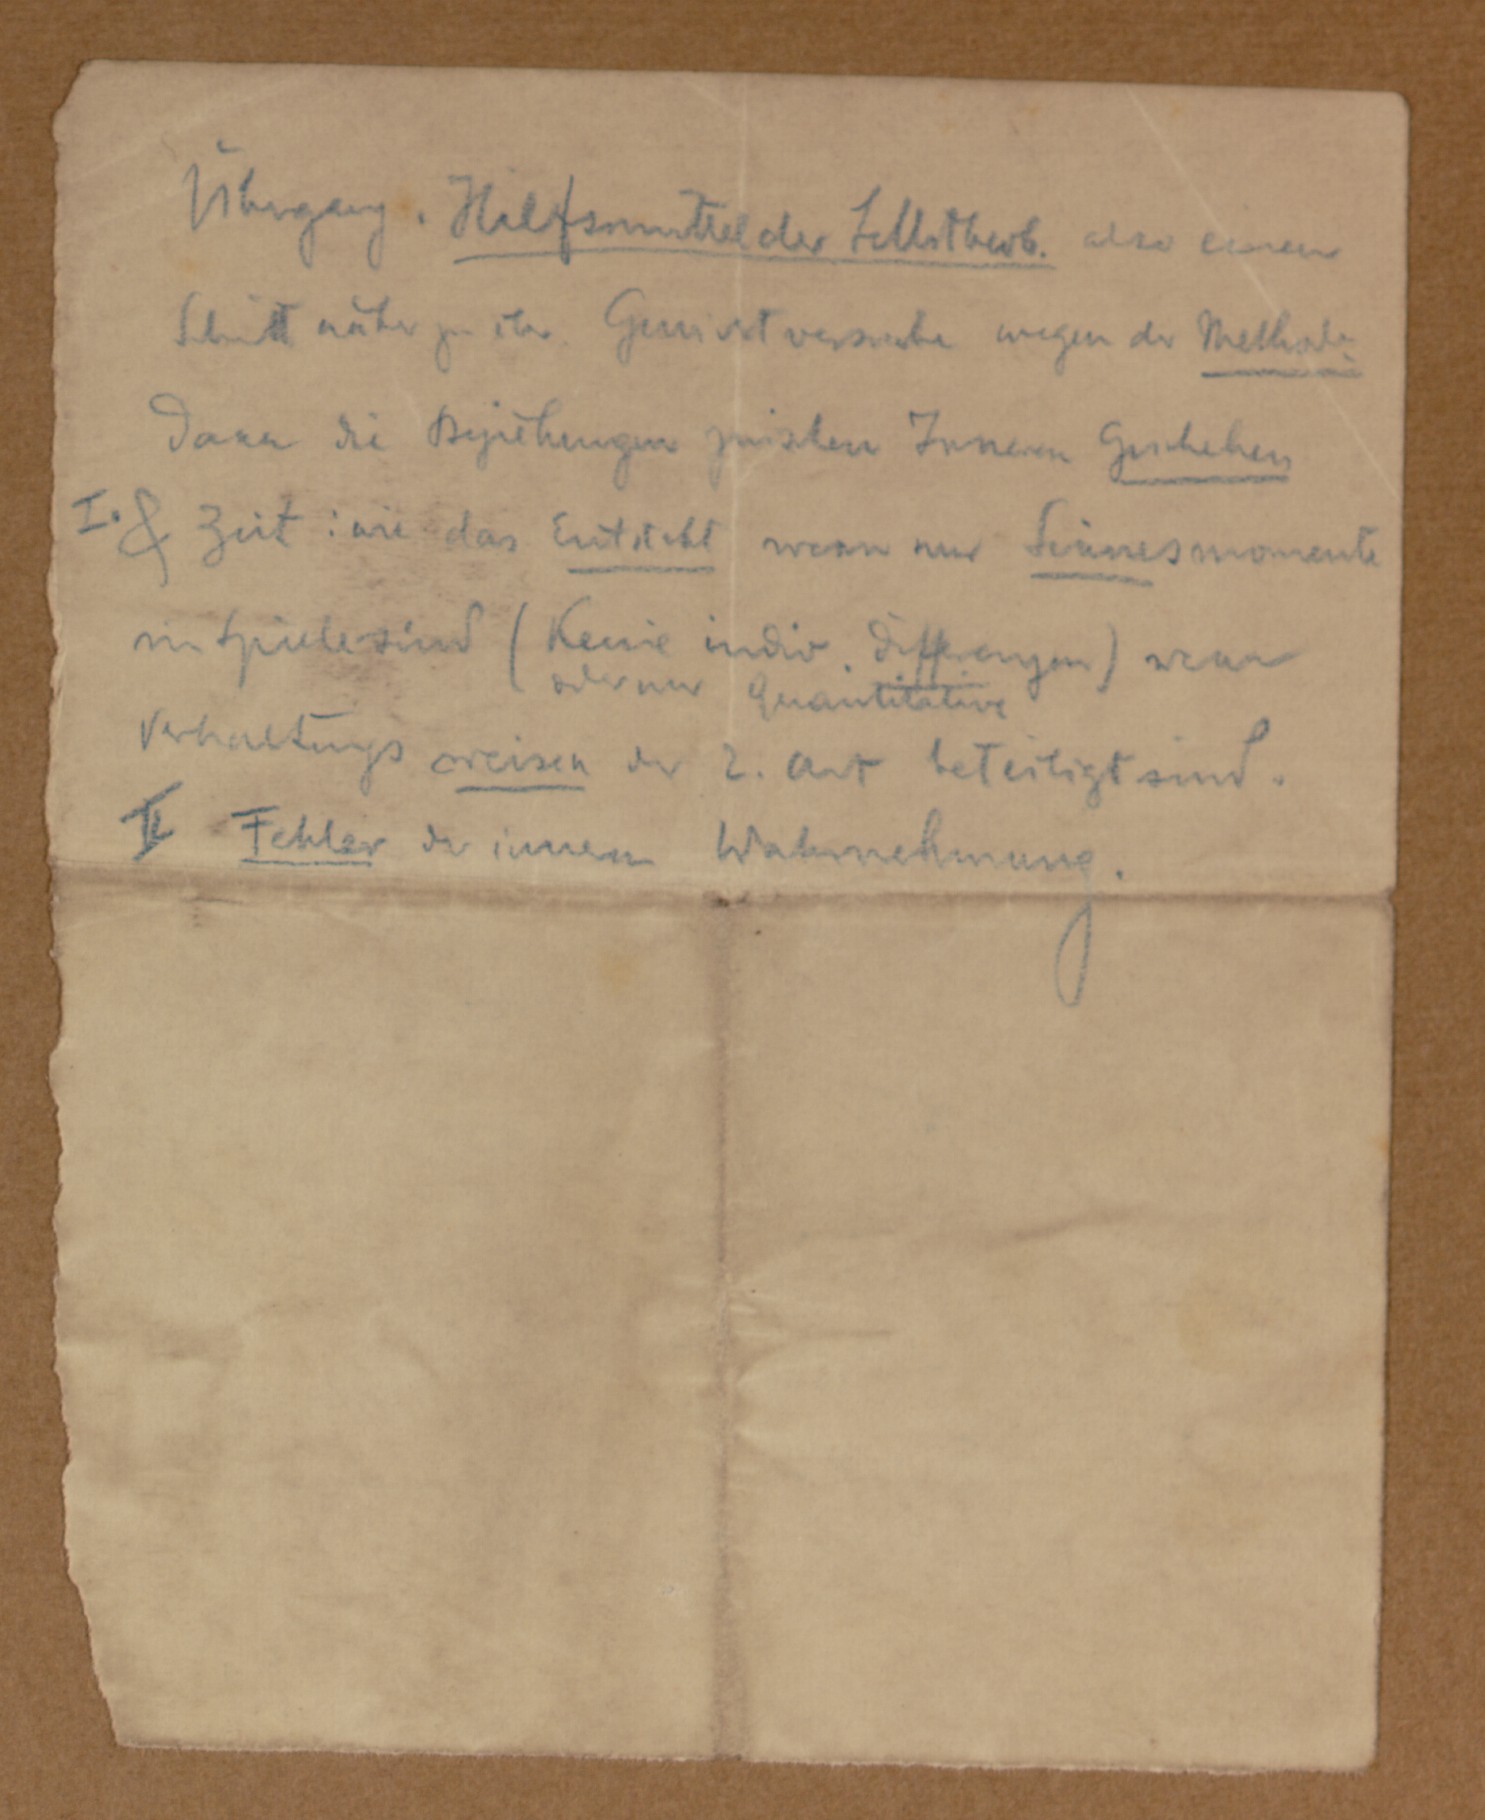 Übergang. Hilfsmittel der Selbstbeob. also einen
Schritt näher zu ihr. versuche wegen der Methode
Dann die Beziehungen zwischen Innerem Geschehen
I. & Zeit : wie das Entsteht wenn nur Sinnesmomente
im Spiele sind (Keine indiv. Differenzen) wenn
oder nur Quantitative
Verhaltungsweisen der 2. Art beteiligt sind.
II Fehler der inneren Wahrnehmung.